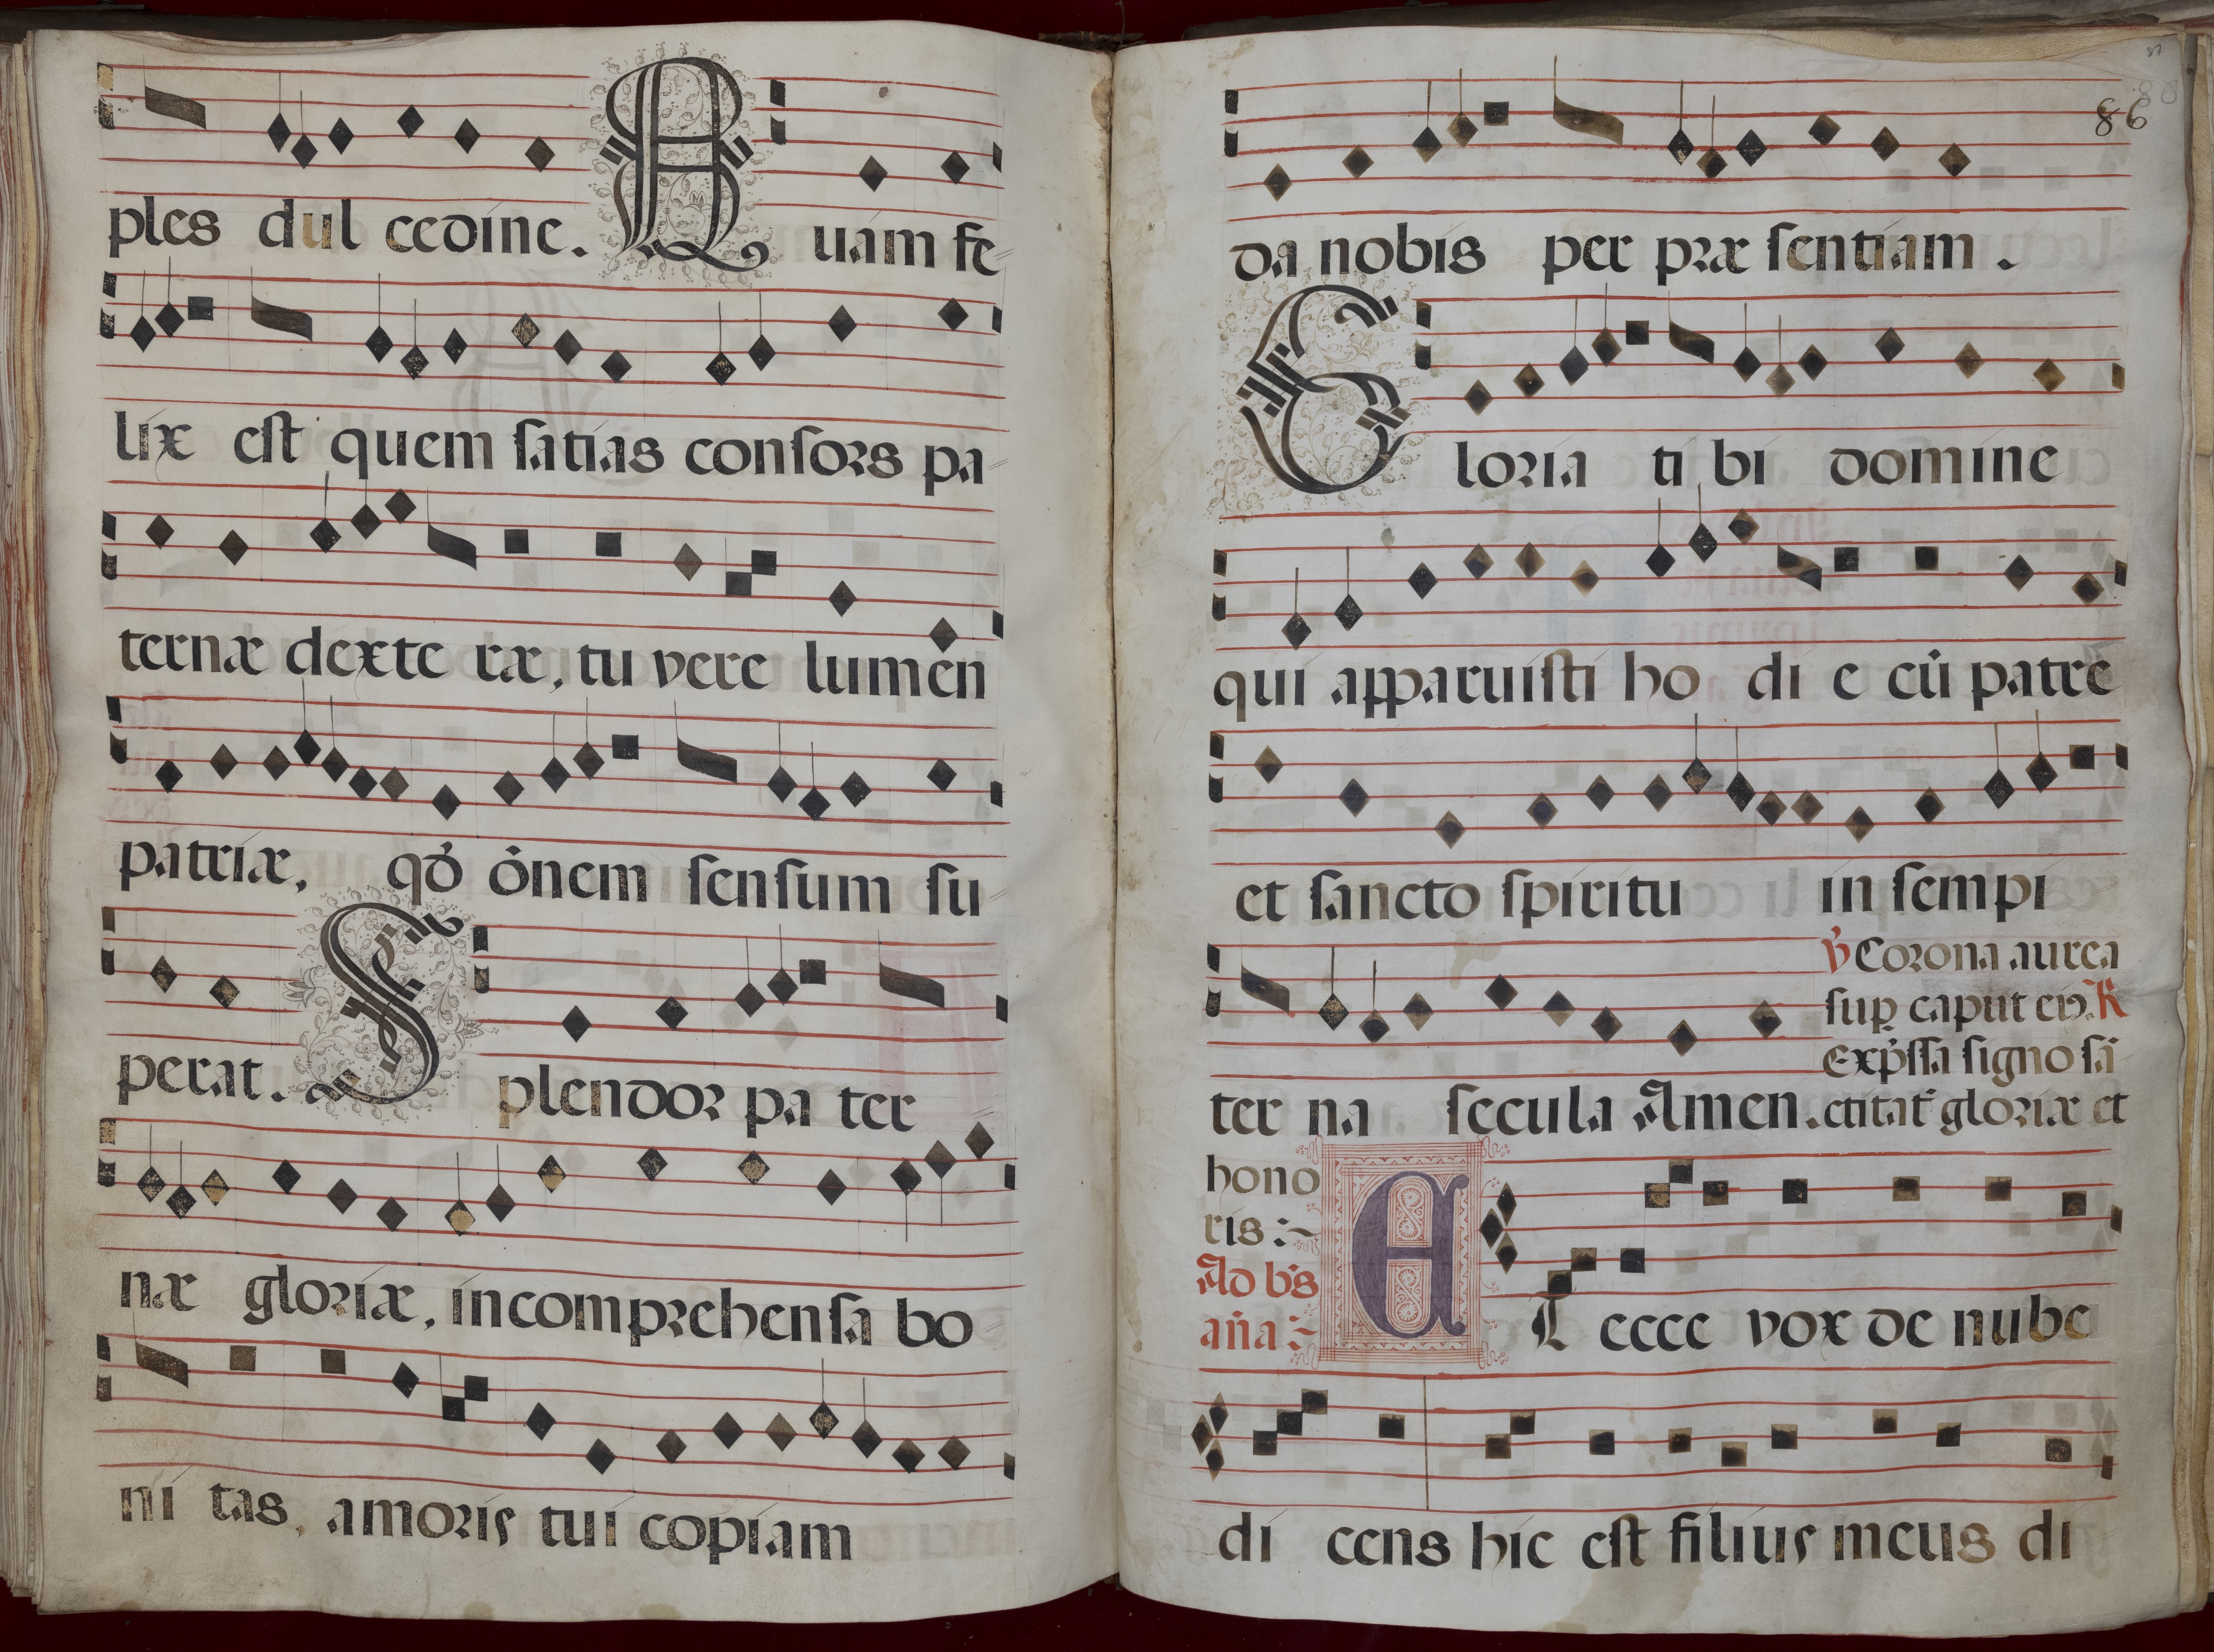 ples dul cedine. Quam fe-
lix est quem satias consors pa-
ternæ dexte ræ, tu vere lumen
patriæ, qđ ōnem sensum su-
perat. Splendor pa ter
næ gloriæ, incomprehensa bo-
ni tas, amoris tui copiam
86
da nobis per præ sentiam.
Gloria ti bi domine
qui apparuisti ho di e cū patre
et sancto spiritu in sempi-
ter na secula Amen.
℣ Corona aurea
sup caput eiꝰ. ℟
Exp̄ssa signo sā-
ctitat gloriæ et
hono
ris :~
Ad bs
aña :~
Et ecce vox de nube
di cens hic est filius meus di